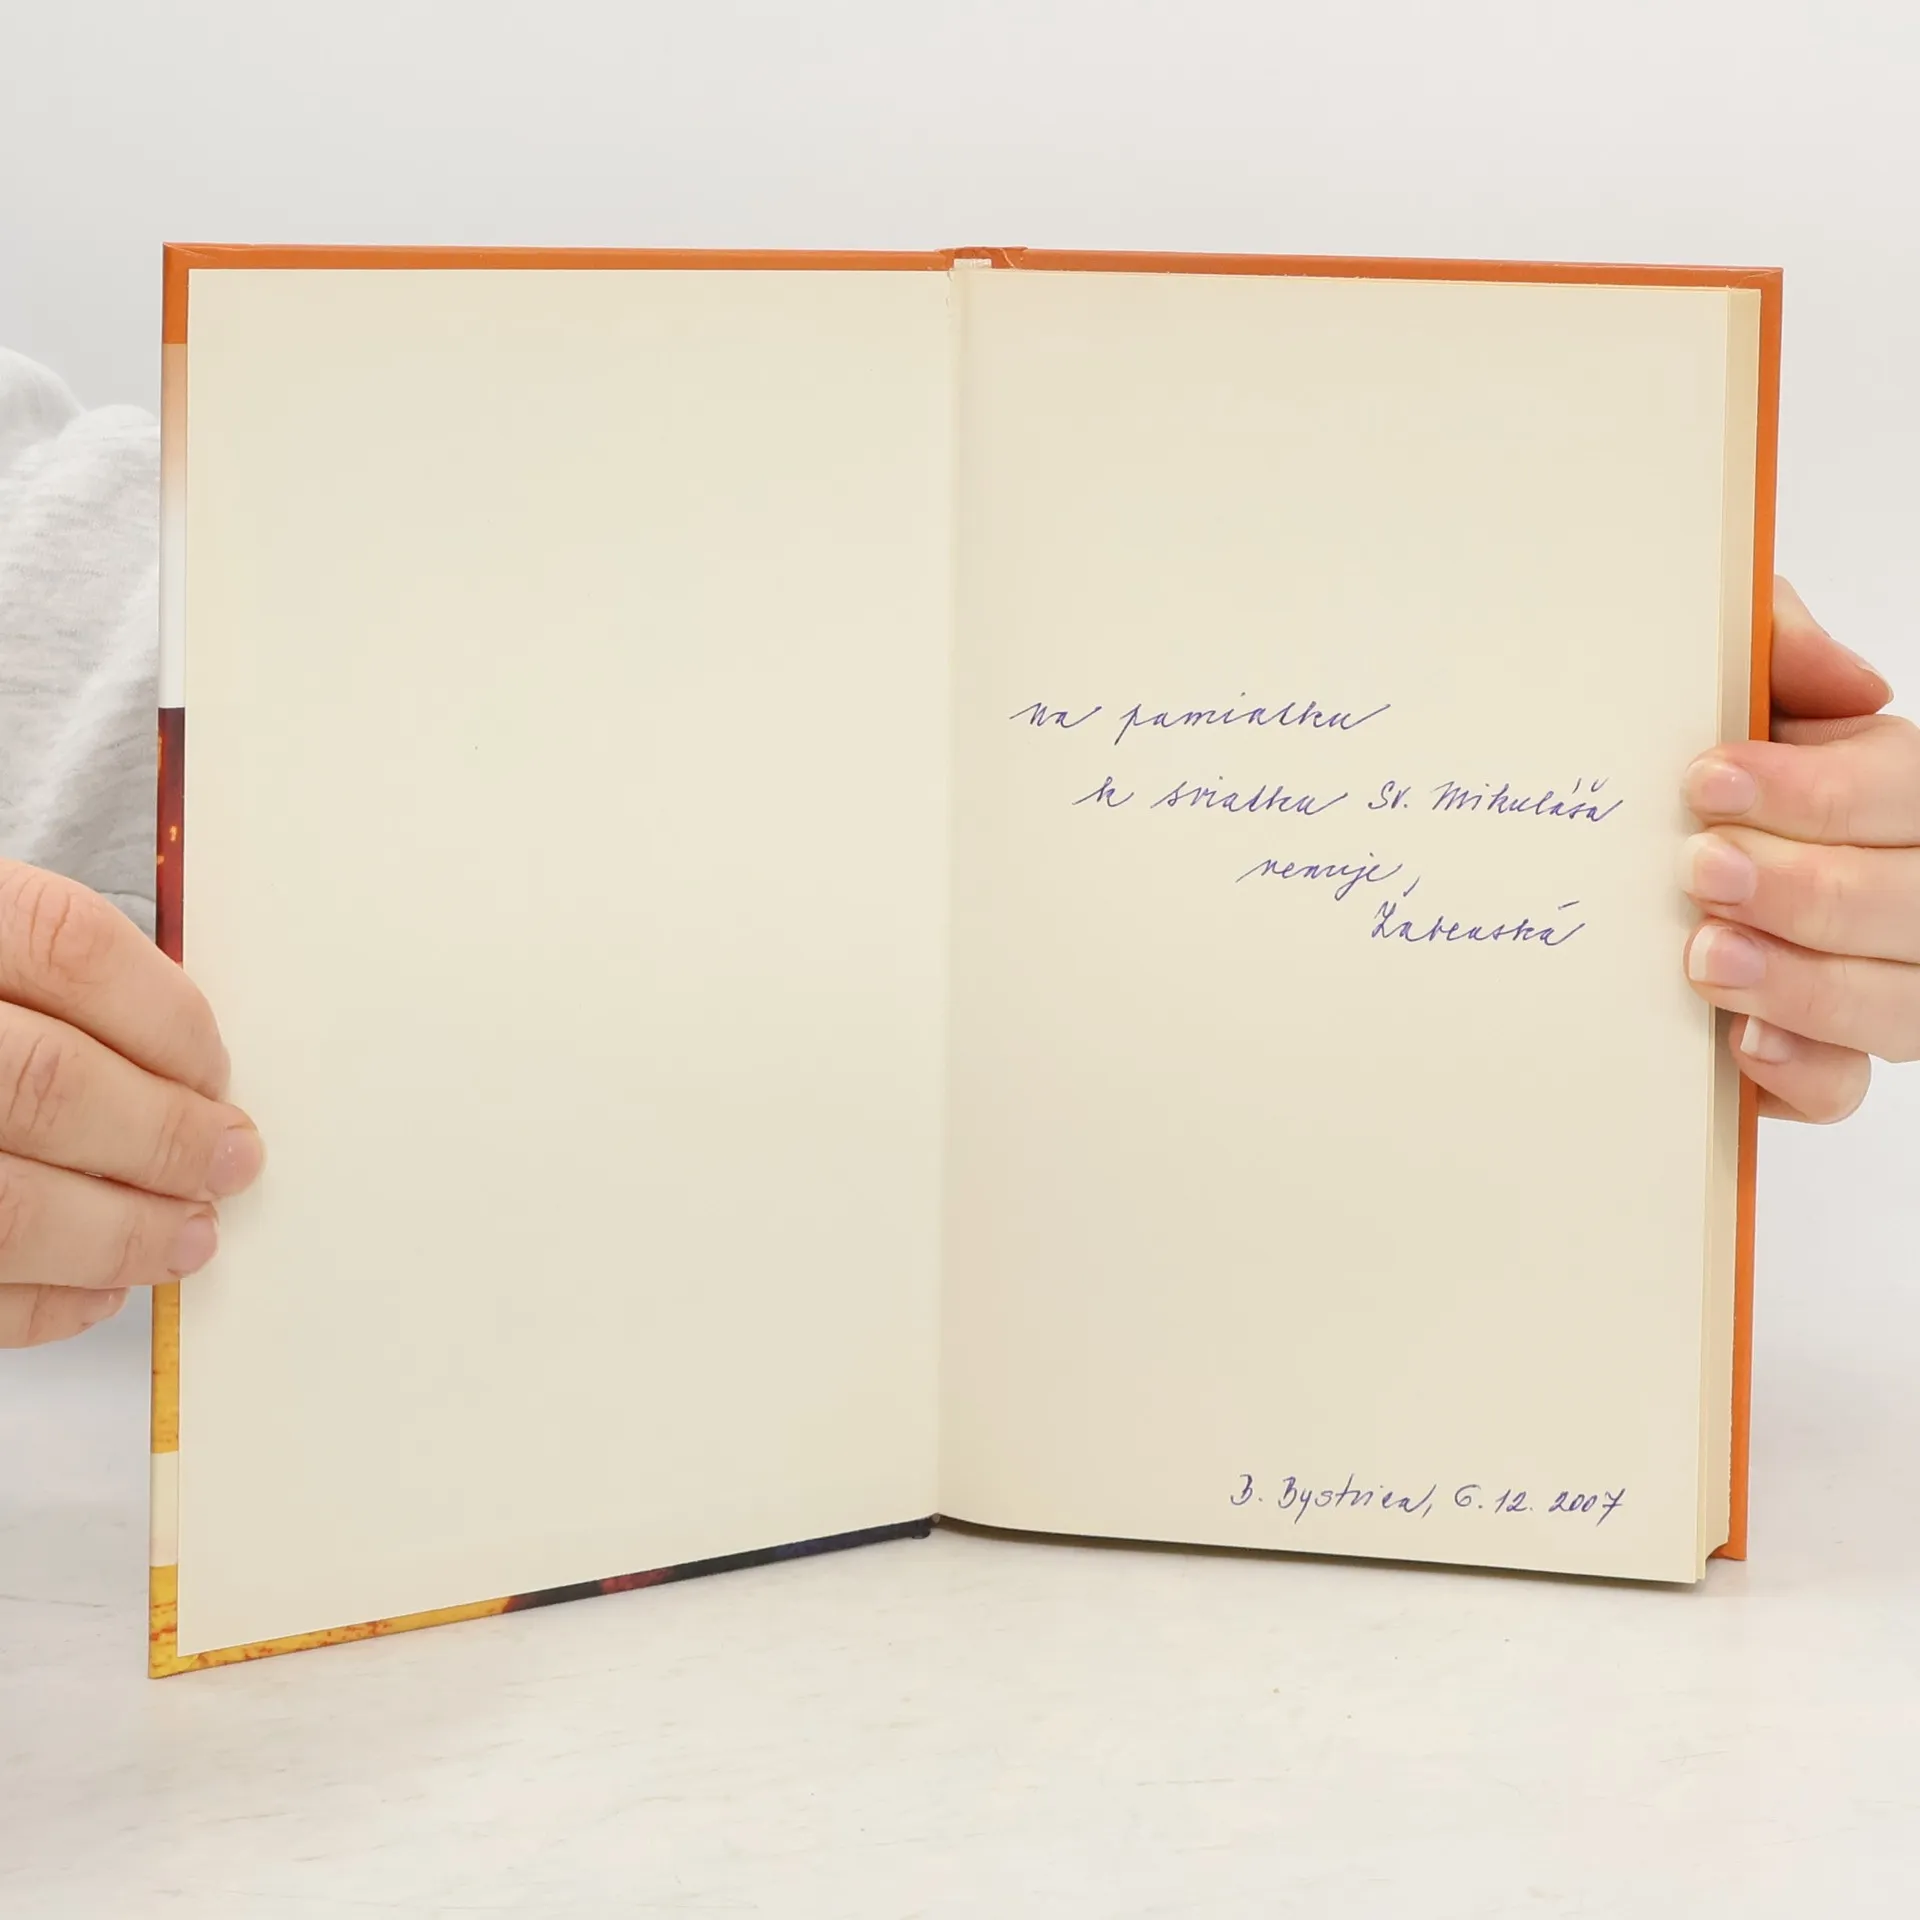 na pamiatku
k sviatku Sv. Mikuláša
venuje,
B. Bystrica, 6.12.2007